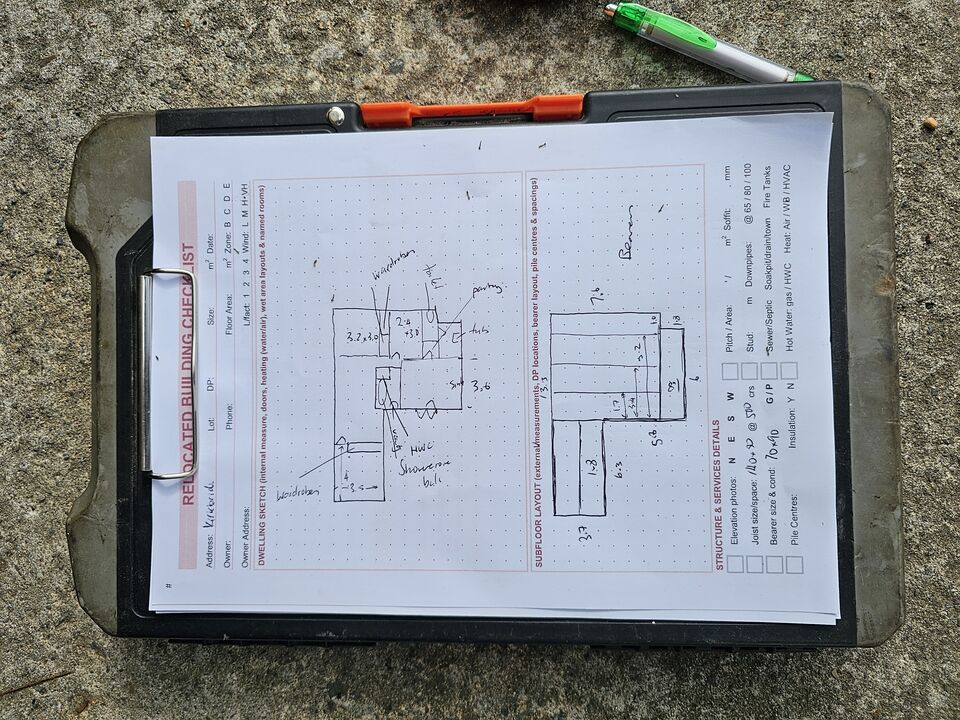 #
RELOCATED BUILDING CHECKLIST
Address: Lot: DP: Size: m² Date:
Owner: Phone: Floor Area: m² Zone: B C D E
Owner Address: L/fact: 1 2 3 4 Wind: L M H+VH
DWELLING SKETCH (internal measure, doors, heating (water/air), wet area layouts & named rooms)
wardrobes
4
3.2x3.0
2.4
x3.0
wardrobes
HWC
Shower over
bath
pantry
tub
3.6
SUBFLOOR LAYOUT (external measurements, DP locations, bearer layout, pile centres & spacings)
3.7
1.8
6.3
5.8
1.7
3.4
5.2
1.0
1.8
6
7.6
Bearers
STRUCTURE & SERVICES DETAILS
Elevation photos: N E S W Pitch / Area: / m² Soffit: mm
Joist size/space: 140x50 @ 500 crs Stud: m Downpipes: @ 65 / 80 / 100
Bearer size & cond: 70x90 G / P Sewer/Septic Soakpit/drain/town Fire Tanks
Pile Centres: Insulation: Y N Hot Water: gas / HWC Heat: Air / WB / HVAC